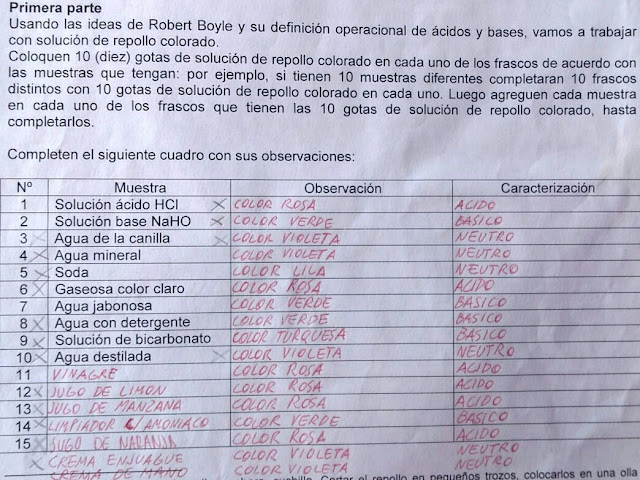 Primera parte
Usando las ideas de Robert Boyle y su definición operacional de ácidos y bases, vamos a trabajar
con solución de repollo colorado.
Coloquen 10 (diez) gotas de solución de repollo colorado en cada uno de los frascos de acuerdo con
las muestras que tengan: por ejemplo, si tienen 10 muestras diferentes completaran 10 frascos
distintos con 10 gotas de solución de repollo colorado en cada uno. Luego agreguen cada muestra
en cada uno de los frascos que tienen las 10 gotas de solución de repollo colorado, hasta
completarlos.
Completen el siguiente cuadro con sus observaciones:
Nº Muestra Observación Caracterización
1 Solución ácido HCl x COLOR ROSA ACIDO
2 Solución base NaHO x COLOR VERDE BASICO
3 x Agua de la canilla x COLOR VIOLETA NEUTRO
4 x Agua mineral COLOR VIOLETA NEUTRO
5 x Soda COLOR LILA NEUTRO
6 x Gaseosa color claro COLOR ROSA ACIDO
7 Agua jabonosa COLOR VERDE BASICO
8 x Agua con detergente COLOR VERDE BASICO
9 x Solución de bicarbonato COLOR TURQUESA BASICO
10 x Agua destilada x COLOR VIOLETA NEUTRO
11 VINAGRE COLOR ROSA ACIDO
12 x JUGO DE LIMON COLOR ROSA ACIDO
13 x JUGO DE MANZANA COLOR ROSA ACIDO
14 x LIMPIADOR C/AMONIACO COLOR VERDE BASICO
15 x JUGO DE NARANJA COLOR ROSA ACIDO
x CREMA ENJUAGUE COLOR VIOLETA NEUTRO
CREMA DE MANO COLOR VIOLETA NEUTRO
cuchillo. Cortar el repollo en pequeños trozos, colocarlos en una olla